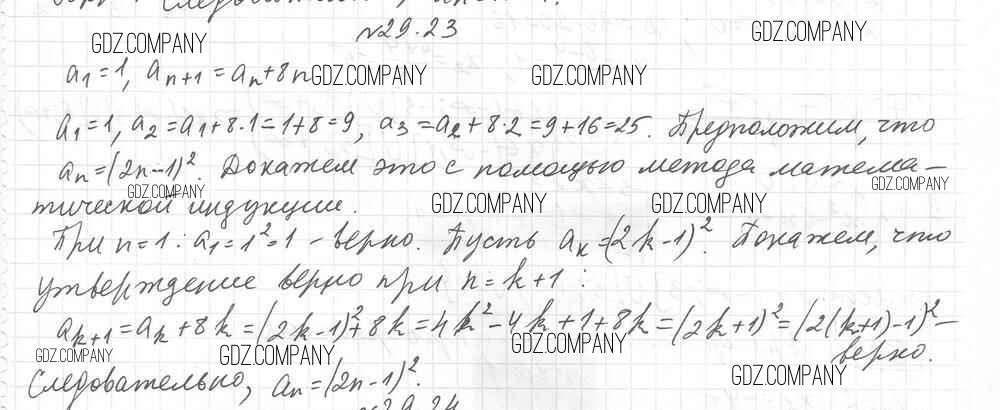 №29.23
GDZ.COMPANY GDZ.COMPANY
a₁=1, aₙ₊₁=aₙ+8n GDZ.COMPANY GDZ.COMPANY
a₁=1, a₂=a₁+8·1=1+8=9, a₃=a₂+8·2=9+16=25. Предположим, что
aₙ=(2n-1)². Докажем это с помощью метода матема-
GDZ.COMPANY GDZ.COMPANY
тической индукции. GDZ.COMPANY GDZ.COMPANY
При n=1: a₁=1²=1 - верно. Пусть aₖ=(2k-1)². Покажем, что
утверждение верно при n=k+1:
aₖ₊₁=aₖ+8k=(2k-1)²+8k=4k²-4k+1+8k=(2k+1)²=(2(k+1)-1)²-
GDZ.COMPANY GDZ.COMPANY GDZ.COMPANY верно.
Следовательно, aₙ=(2n-1)². GDZ.COMPANY
№29.24